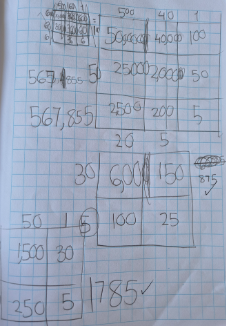 500 40 1
50,000 40,000 100
567,855 5 25000 2,000 50
567,855 2500 200 5
20 5
30 600 150
875 ✓
50 1 5 100 25
1,500 30
250 5 1785 ✓